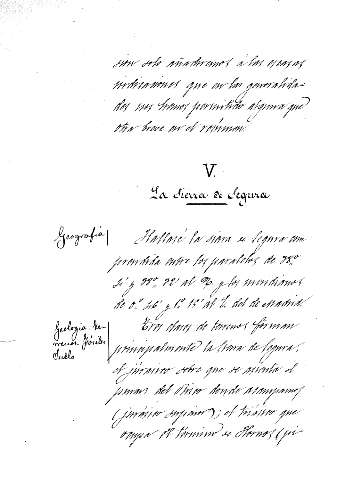 sion solo añadiremos á las escasas
indicaciones que en las generalida-
des nos hemos permitido alguna que
otra breve en el resumen.
V.
La Sierra de Segura
Geografía
Hallase la sierra de Segura com
prendida entre los paralelos de 38º
y 38º 32' al N. y los meridianos
de 0º 46' y 1º 15' al E. del de Madrid.
Geología
Suelo
Tres clases de terrenos forman
principalmente la Sierra de Segura;
el jurásico sobre que se asienta el
pinar del donde acampamos
(jurásico superior); el triásico que
ocupa el término de Hornos (